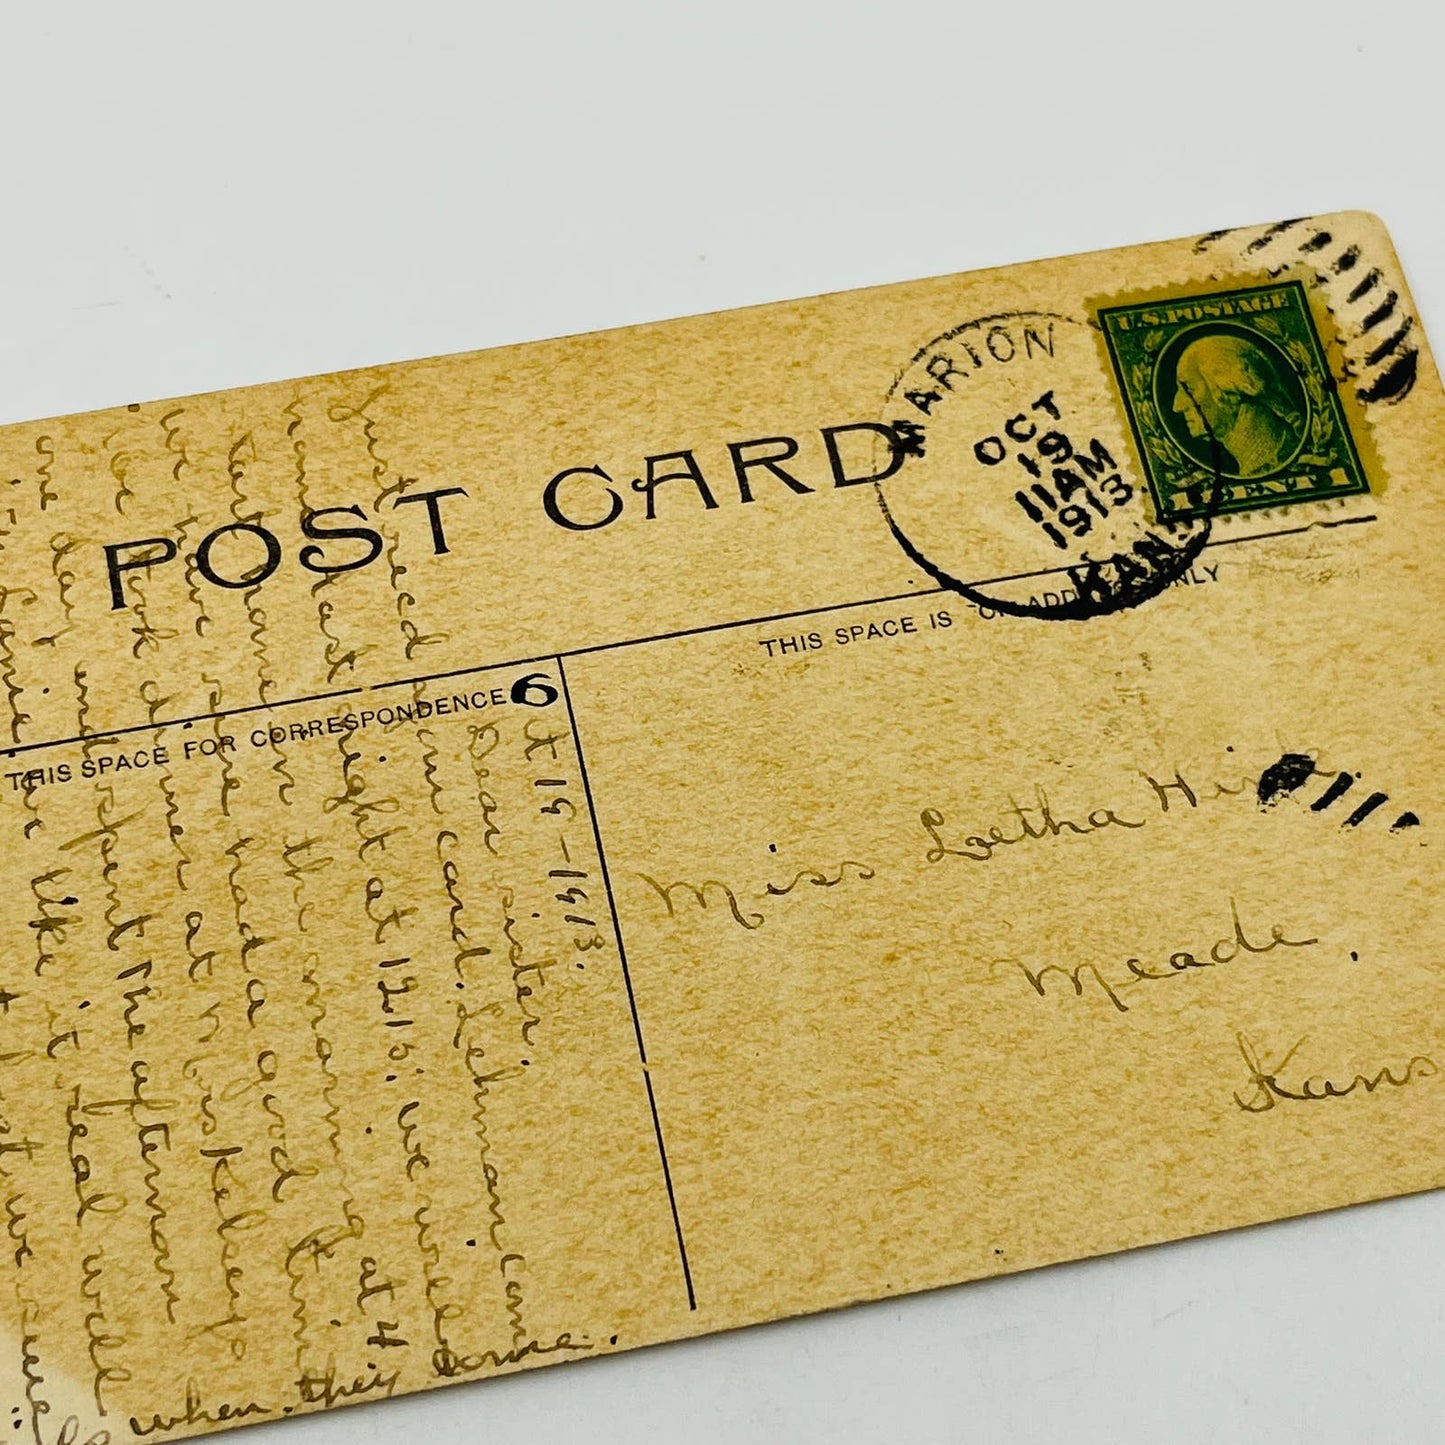 POST CARD
MARION
OCT
19
11 AM
1913
KAN.
U.S. POSTAGE
1 CENT 1
THIS SPACE FOR CORRESPONDENCE
6
THIS SPACE IS FOR ADDRESS ONLY
Miss Letha
Meade,
Kans
Oct 19-1913.
Dear sister.
Just recd card. Lehman came
home last night at 12.15. we will
in the morning at 4
we have sure had a good time
We took dinner at
one day and spent the afternoon
like it real well
we sure
when they come.